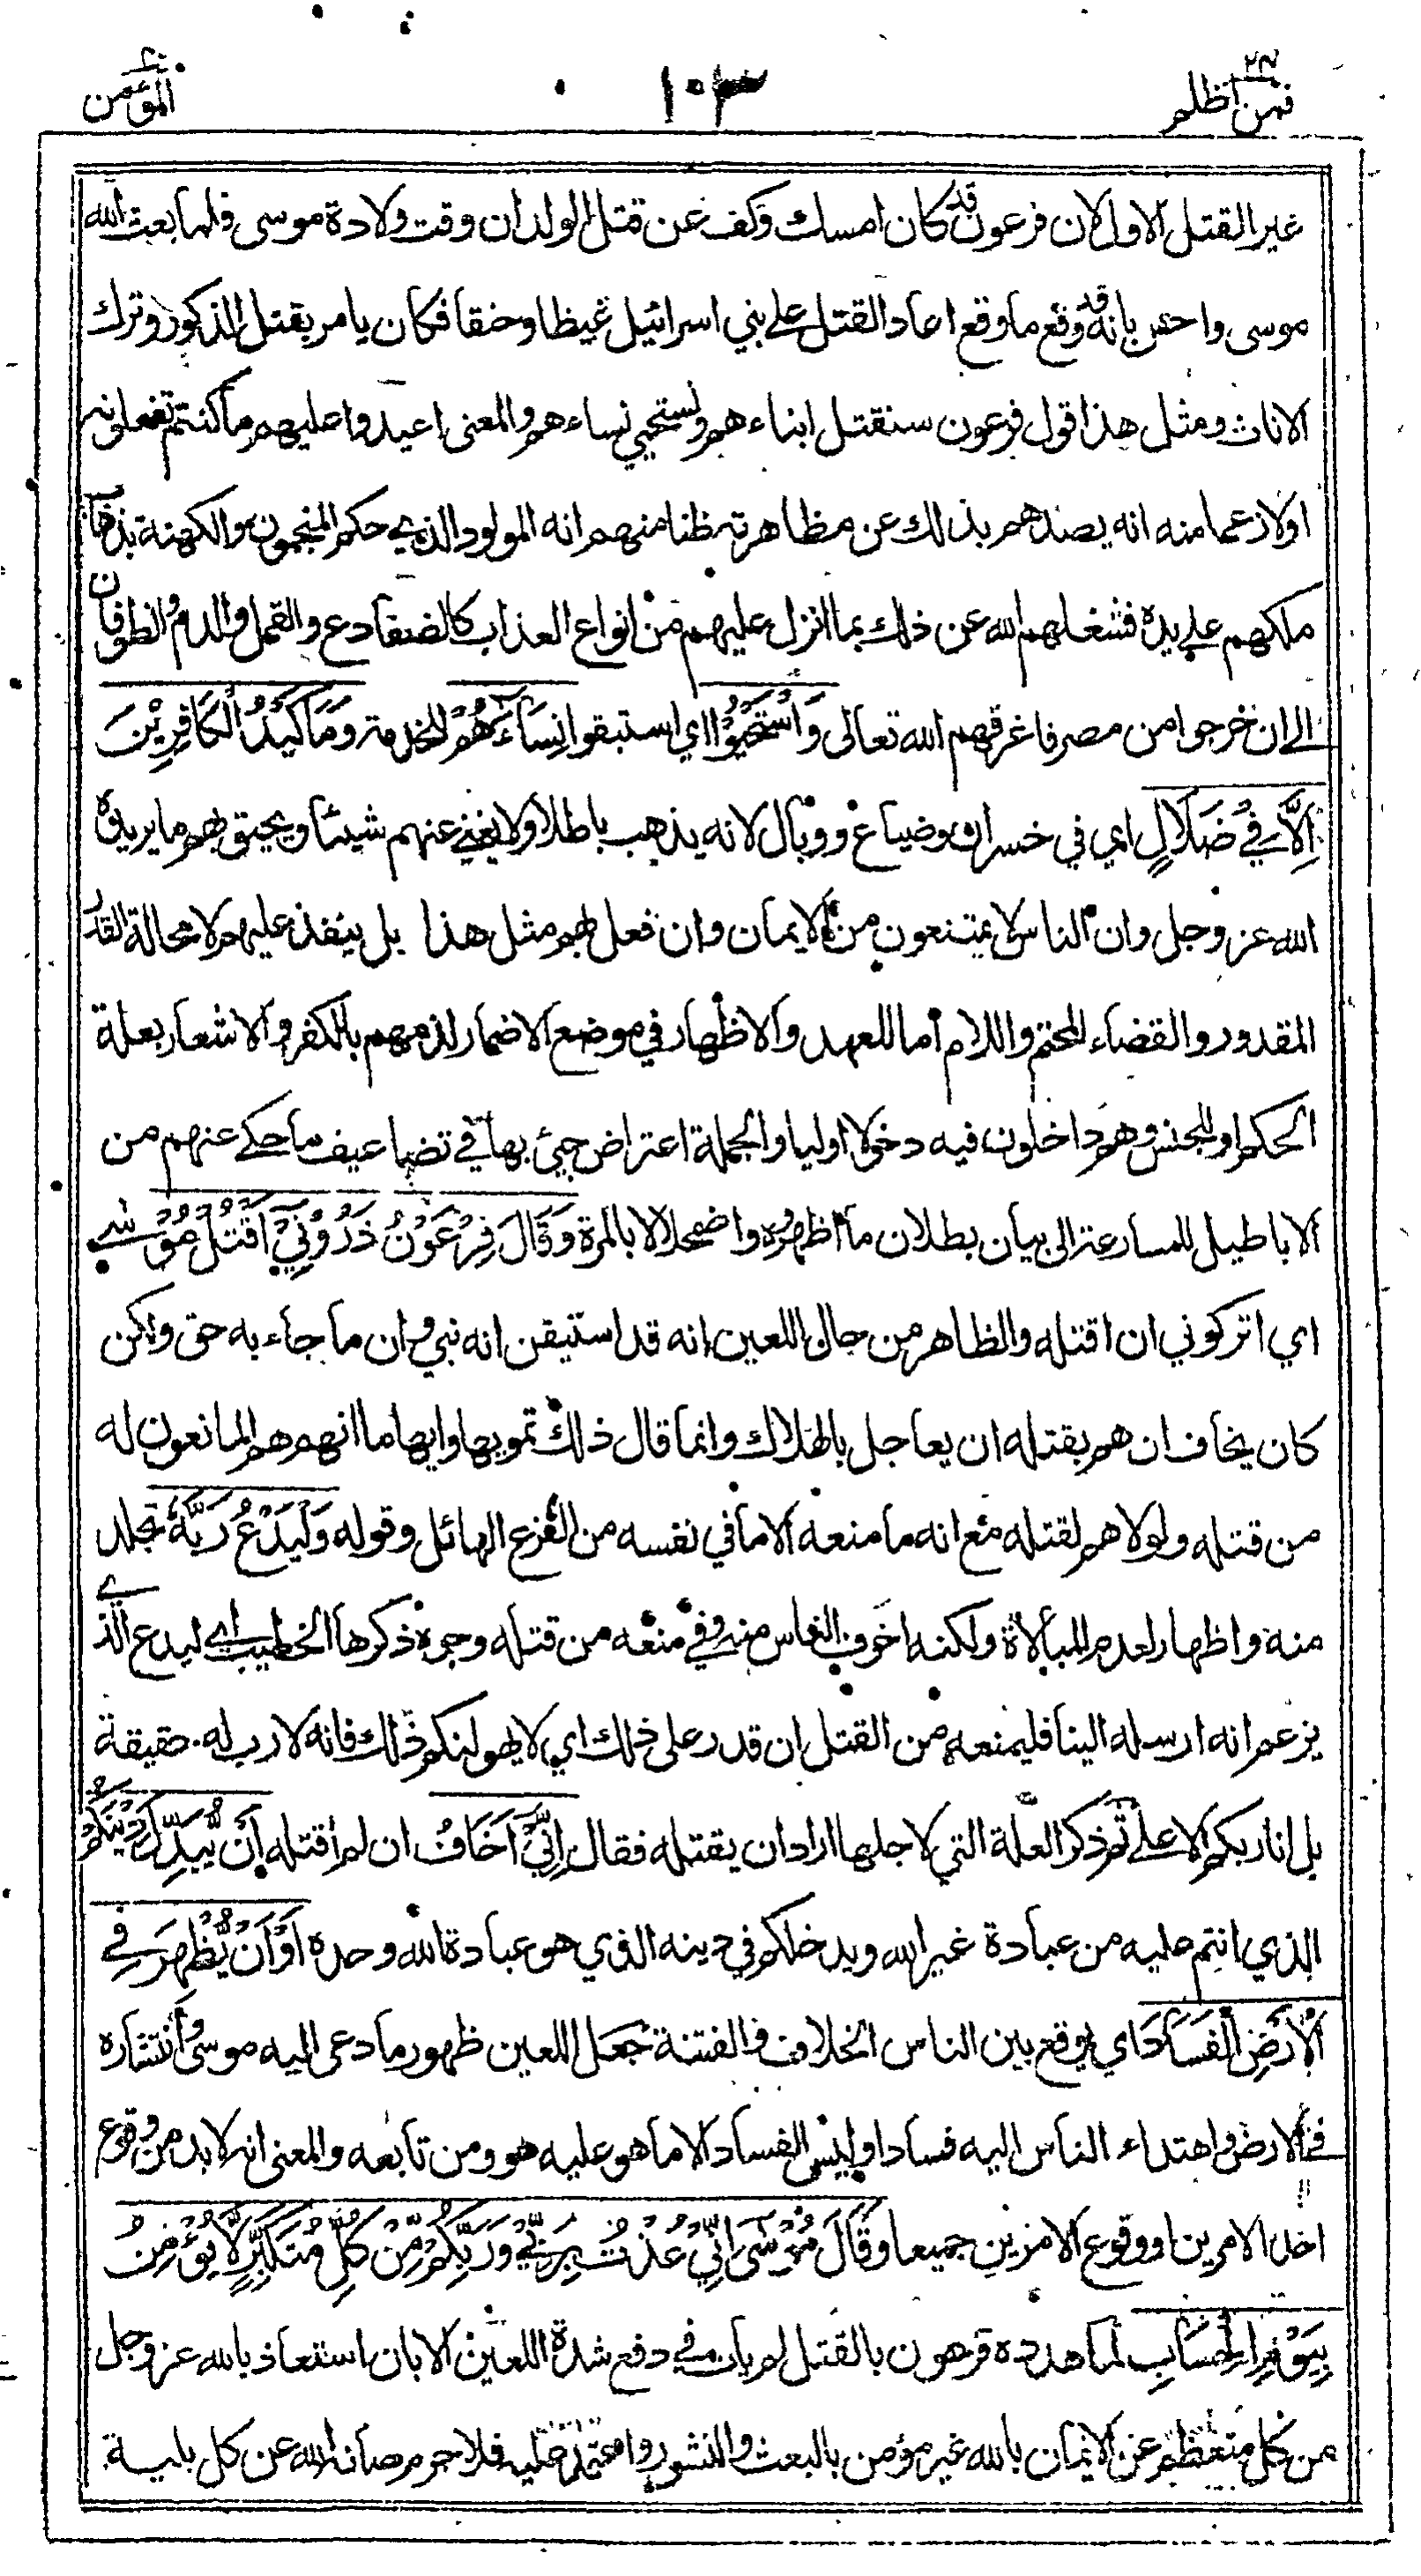 فمن اظلم ٢٤
١٠٣
المؤمن ٤٠
غير القتل الاول لان فرعون قد كان امسك وكف عن قتل الولدان وقت ولادة موسى فلما بعث الله
موسى واحس بانه قد وقع ما وقع اعاد القتل على بني اسرائيل غيظا وحنقا فكان يامر بقتل الذكور وترك
الاناث ومثل هذا قول فرعون سنقتل ابناءهم ونستحيي نساءهم والمعنى اعيدوا عليهم ما كنتم تفعلونه
اولا زعما منه انه يصدهم بذلك عن مظاهرته ظنا منهم انه المولود الذي حكم المنجمون والكهنة بذهاب
ملكهم على يده فشغلهم الله عن ذلك بما انزل عليهم من انواع العذاب كالضفادع والقمل والدم والطوفان
الى ان خرجوا من مصر فاغرقهم الله تعالى وَاسْتَحْيُوْا اي استبقوا نِسَآءَهُمْ للخدمة وَمَا كَيْدُ الْكَافِرِيْنَ
اِلَّا فِيْ ضَلَالٍ اي في خسران وضياع ووبال لانه يذهب باطلا ولا يغني عنهم شيئا ويحيق بهم ما يريده
الله عز وجل وان الناس لا يمتنعون من الايمان وان فعل بهم مثل هذا بل ينفذ عليهم لا محالة القدر
المقدور والقضاء المحتم واللام اما للعهد والاظهار في موضع الاضمار لذمهم بالكفر والاشعار بعلة
الحكم او للجنس وهم داخلون فيه دخولا اوليا والجملة اعتراض جيئ بها في تضاعيف ما حكي عنهم من
الاباطيل للمسارعة الى بيان بطلان ما اظهروه واضمحلاله بالمرة وَقَالَ فِرْعَوْنُ ذَرُوْنِيْ اَقْتُلْ مُوْسٰى
اي اتركوني ان اقتله والظاهر من حال اللعين انه قد استيقن انه نبي وان ما جاء به حق ولكن
كان يخاف ان هم بقتله ان يعاجل بالهلاك وانما قال ذلك تمويها وايهاما انهم هم المانعون له
من قتله ولولاهم لقتله مع انه ما منعه الا ما في نفسه من الفزع الهائل وقوله وَلْيَدْعُ رَبَّهٗ تجلد
منه واظهار لعدم المبالاة ولكنه اخوف الناس منه وفي منعه من قتله وجوه ذكرها الخطيب اي ليدع الذي
يزعم انه ارسله الينا فليمنعه من القتل ان قدر على ذلك اي لا يهولنكم ذلك فانه لا رب له حقيقة
بل انا ربكم الاعلى ثم ذكر العلة التي لاجلها اراد ان يقتله فقال اِنِّيْ اَخَافُ ان لم اقتله اَنْ يُّبَدِّلَ دِيْنَكُمْ
الذي انتم عليه من عبادة غير الله ويدخلكم في دينه الذي هو عبادة الله وحده اَوْ اَنْ يُّظْهِرَ فِي
الْاَرْضِ الْفَسَادَ اي يوقع بين الناس الخلاف والفتنة جعل اللعين ظهور ما دعى اليه موسى وانتشاره
في الارض واهتداء الناس اليه فسادا وليس الفساد الا ما هو عليه هو ومن تابعه والمعنى انه لا بد من وقوع
احد الامرين او وقوع الامرين جميعا وَقَالَ مُوْسٰى اِنِّيْ عُذْتُ بِرَبِّيْ وَرَبِّكُمْ مِّنْ كُلِّ مُتَكَبِّرٍ لَّا يُؤْمِنُ
بِيَوْمِ الْحِسَابِ لما هدده فرعون بالقتل لم يات في دفع شدة اللعين الا بان استعاذ بالله عز وجل
من كل متعظم عن الايمان بالله غير مؤمن بالبعث والنشور واعتمد عليه فلا جرم صانه الله عن كل بلية